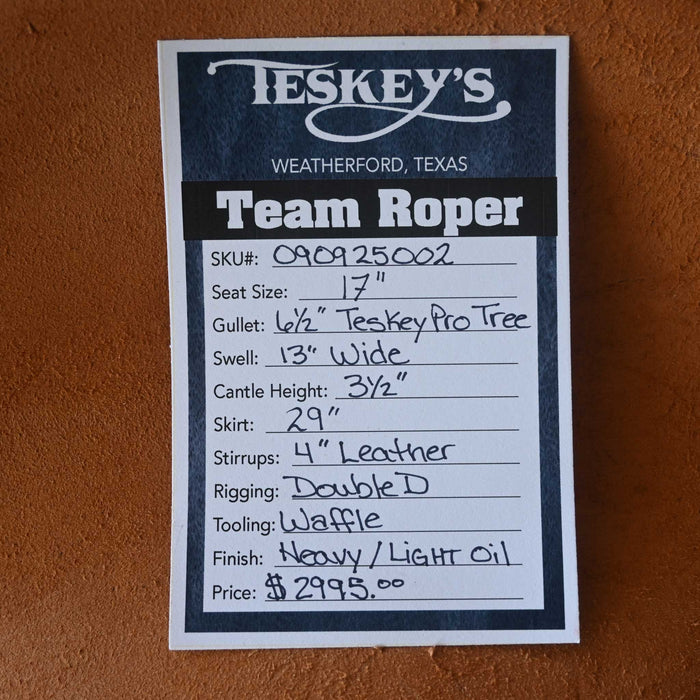 TESKEY'S
WEATHERFORD, TEXAS
Team Roper
SKU#: 090925002
Seat Size: 17"
Gullet: 6½" Teskey Pro Tree
Swell: 13" Wide
Cantle Height: 3½"
Skirt: 29"
Stirrups: 4" Leather
Rigging: Double D
Tooling: Waffle
Finish: Heavy / LIGHT Oil
Price: $2995.00